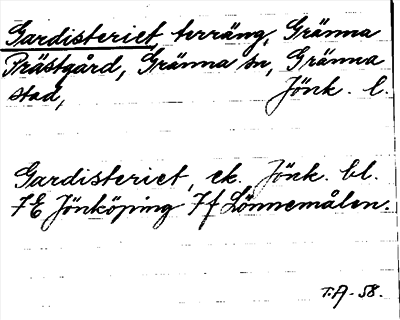 Gardisteriet, terräng, Gränna
Prästgård, Gränna sn, Gränna
stad, Jönk. l.
Gardisteriet, ek. Jönk. bl.
7E Jönköping 7f Lönnemålen.
T.A-58.